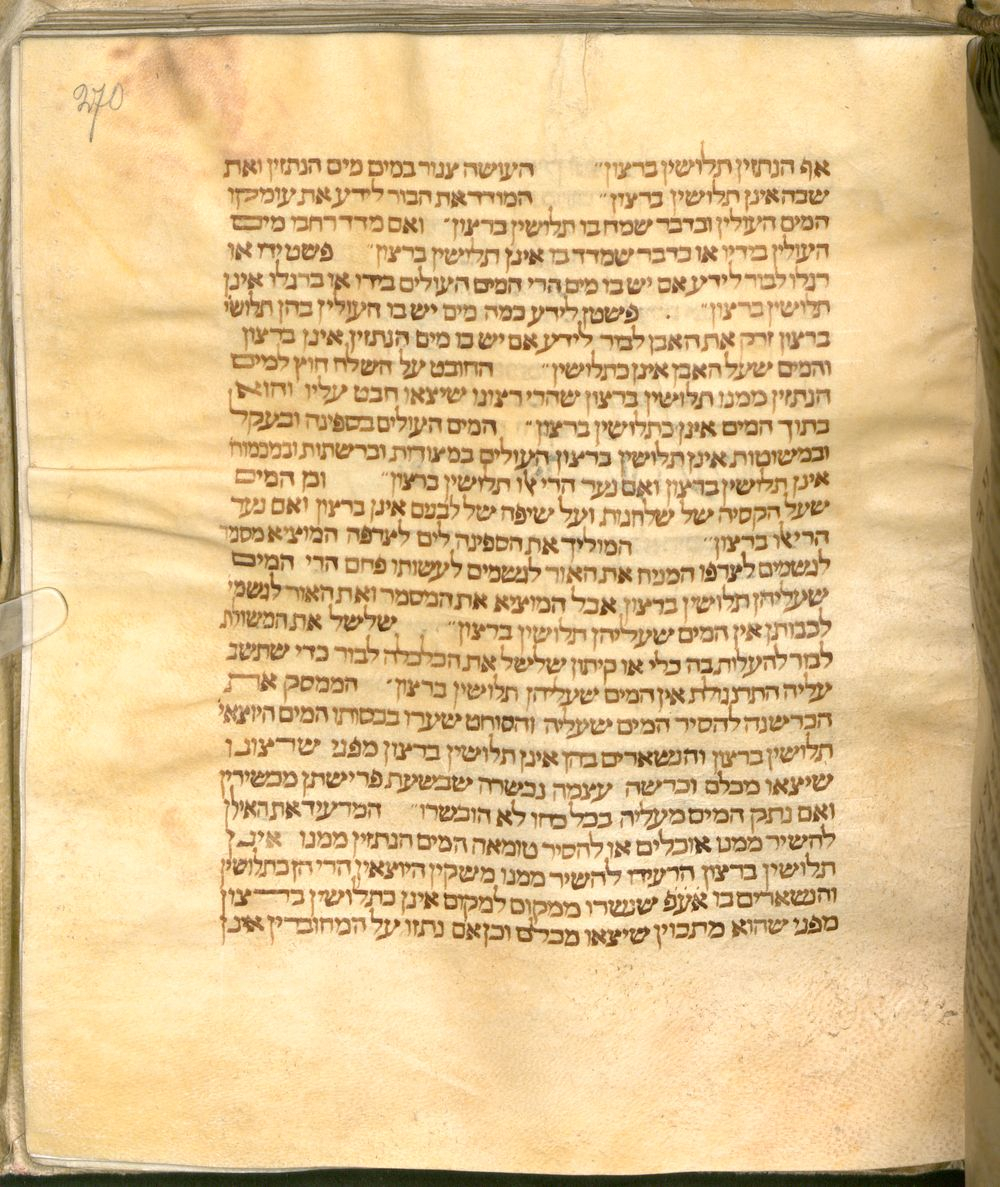 270
אף הנתזין תלושין ברצון״ העושה צנור במים מים הנתזין ואת
שבה אינן תלושין ברצון״ המודד את הבור לידע את עומקו
המים העולין ובדבר שמח בו תלושין ברצון״ ואם מדד רחבו מים
העולין בידיו או בדבר שמדד בו אינן תלושין ברצון״ פשט ידו או
רגלו לבור לידע אם יש בו מים הרי המים העולים בידו או ברגלו אינן
תלושין ברצון״ פשטן לידע כמה מים יש בו העולין בהן תלושי
ברצון זרק את האבן לבור לידע אם יש בו מים הנתזין אינן ברצון
והמים שעל האבן אינן כתלושין״ החובט על השלח חוץ למים
הנתזין ממנו תלושין ברצון שהרי רצונו שיצאו חבט עליו והוא
בתוך המים אינן כתלושין ברצון״ המים העולים בספינה ובעקל
ובמשוטות אינן תלושין ברצון העולים במצודות וברשתות ובמכמרות
אינן תלושין ברצון ואם נער הרי אלו תלושין ברצון״ וכן המים
שעל הקסיה של שלחנות ועל שיפה של לבנים אינן ברצון ואם נער
הרי אלו ברצון״ המוליך את הספינה לים לצרפה המוציא מסמר
לגשמים לצרפו המניח את האור לגשמים לעשותו פחם הרי המים
שעליהן תלושין ברצון אבל המוציא את המסמר ואת האור לגשמי
לכבותן אין המים שעליהן תלושין ברצון״ שלשל את המשולת
לבור להעלות בה כלי או קיתון שלשל את הכלכלה לבור כדי שתשב
עליה התרנגולת אין המים שעליהן תלושין ברצון״ הממסק את
הכרישנה להסיר המים שעליה והסוחט שערו בכסותו המים היוצאי
תלושין ברצון והנשארים בהן אינן תלושין ברצון מפני שרצונו
שיצאו מכלם וכרישה עצמה נכשרה שבשעת פרישתן מכשירין
ואם נתק המים מעליה בכל כחו לא הוכשרו״ המרעיד את האילן
להשיר ממנו אוכלים או להסיר טומאה המים הנתזין ממנו אינן
תלושין ברצון הרעידו להשיר ממנו משקין היוצאין הרי הן כתלושין
והנשארים בו אע״פ שנשרו ממקום למקום אינן כתלושין ברצון
מפני שהוא מתכוין שיצאו מכלם וכן אם נתזו על המחוברין אינן